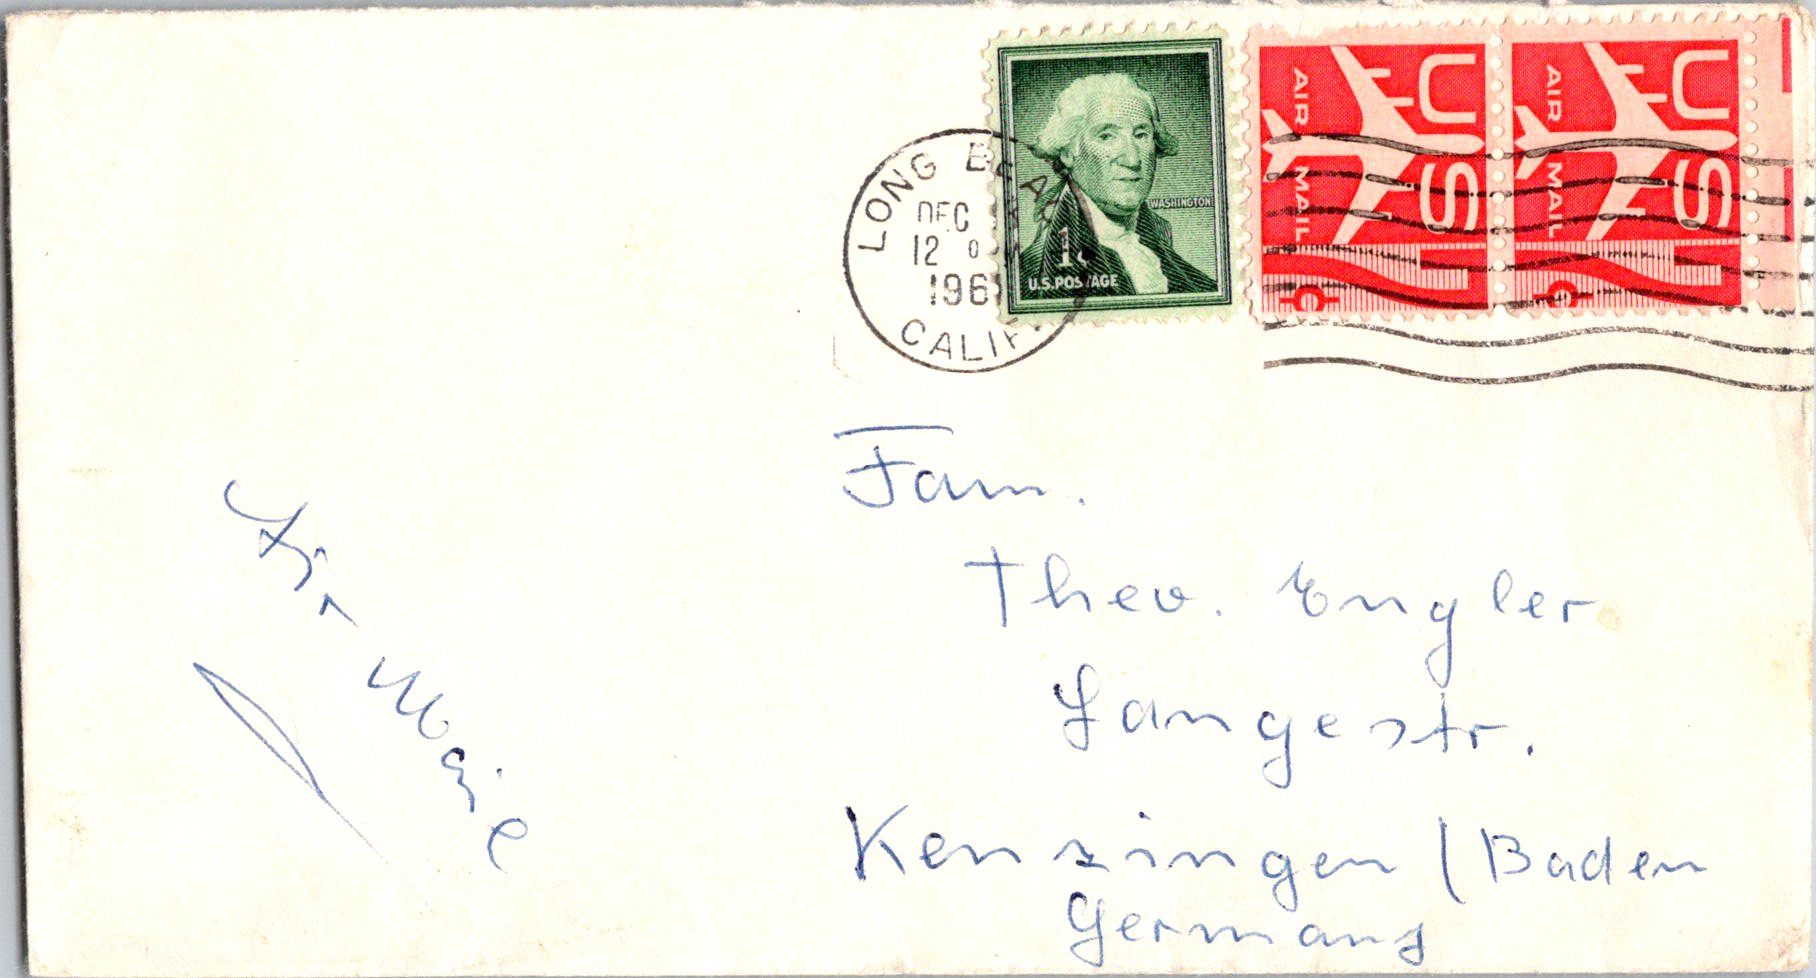 LONG BEACH
DEC
12
196
CALIF.
WASHINGTON
1¢
U.S. POSTAGE
US
AIR MAIL
7¢
US
AIR MAIL
7¢
Air Maile
Fam.
Theo. Engler
Langestr.
Kenzingen / Baden
Germany